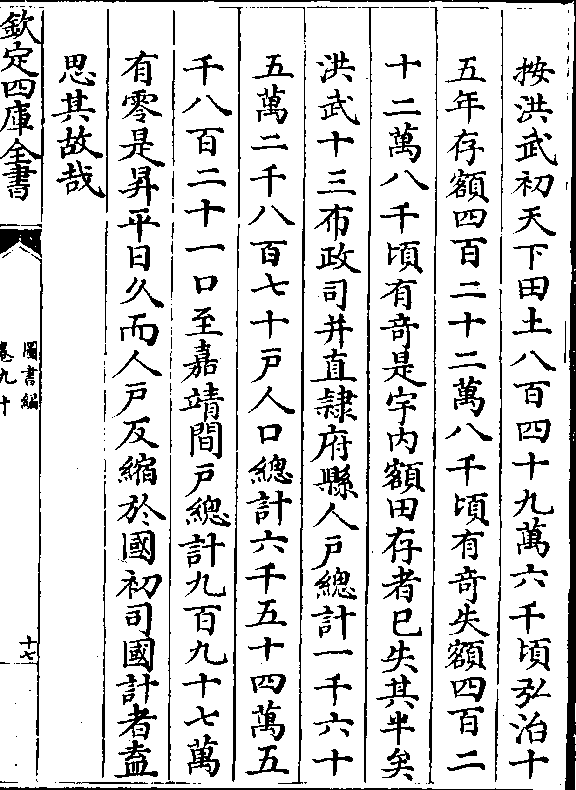 按洪武初天下田土八百四十九萬六千頃弘治十
五年存額四百二十二萬八千頃有奇失額四百二
十二萬八千頃有奇是宇内額田存者已失其半矣
洪武十三布政司并直隸府縣人戸總計一千六十
五萬二千八百七十戸人口總計六千五十四萬五
千八百二十一口至嘉靖間戸總計九百九十七萬
有零是昇平日久而人戸反縮於國初司國計者盍
思其故哉
欽定四庫全書
圖書編
卷九十
十七